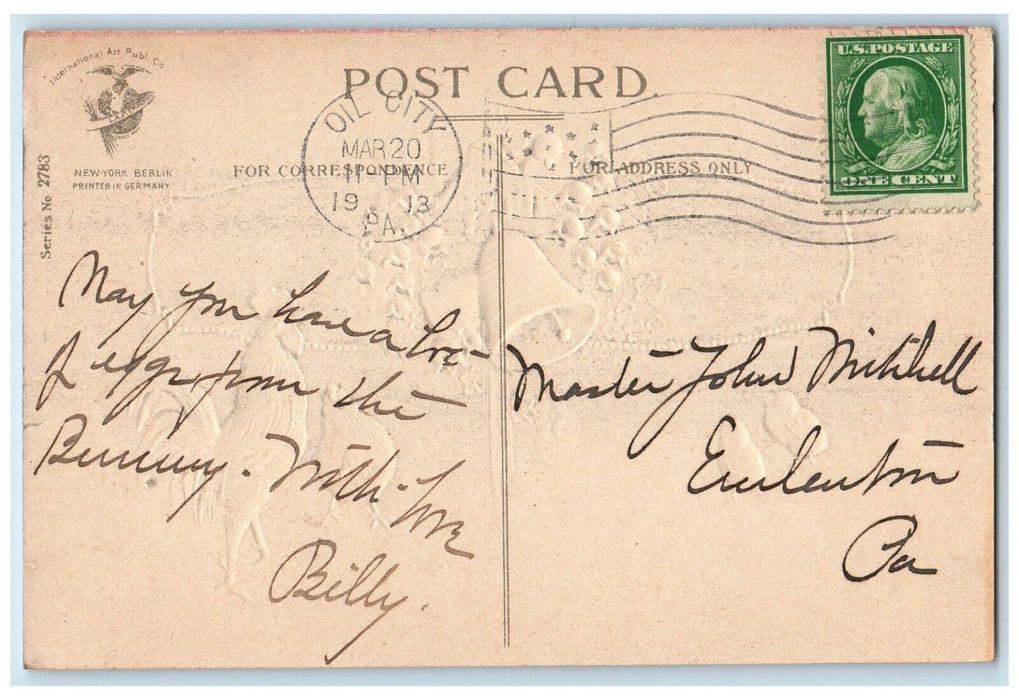 International Art Publ. Co.
NEW-YORK BERLIN
PRINTED IN GERMANY
Series No 2783
POST CARD.
FOR CORRESPONDENCE
FOR ADDRESS ONLY
OIL CITY
MAR 20
11-PM
19 13
PA.
U.S. POSTAGE
ONE CENT
May you have a lot
of eggs from the
Bunny. With love
Billy.
Master John Mitchell
Emlenton
Pa